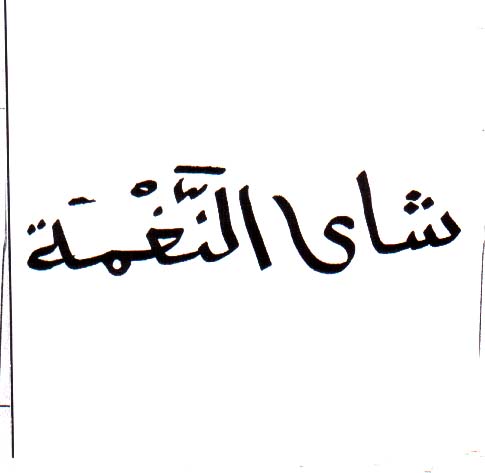 شاى النَّغْمَة